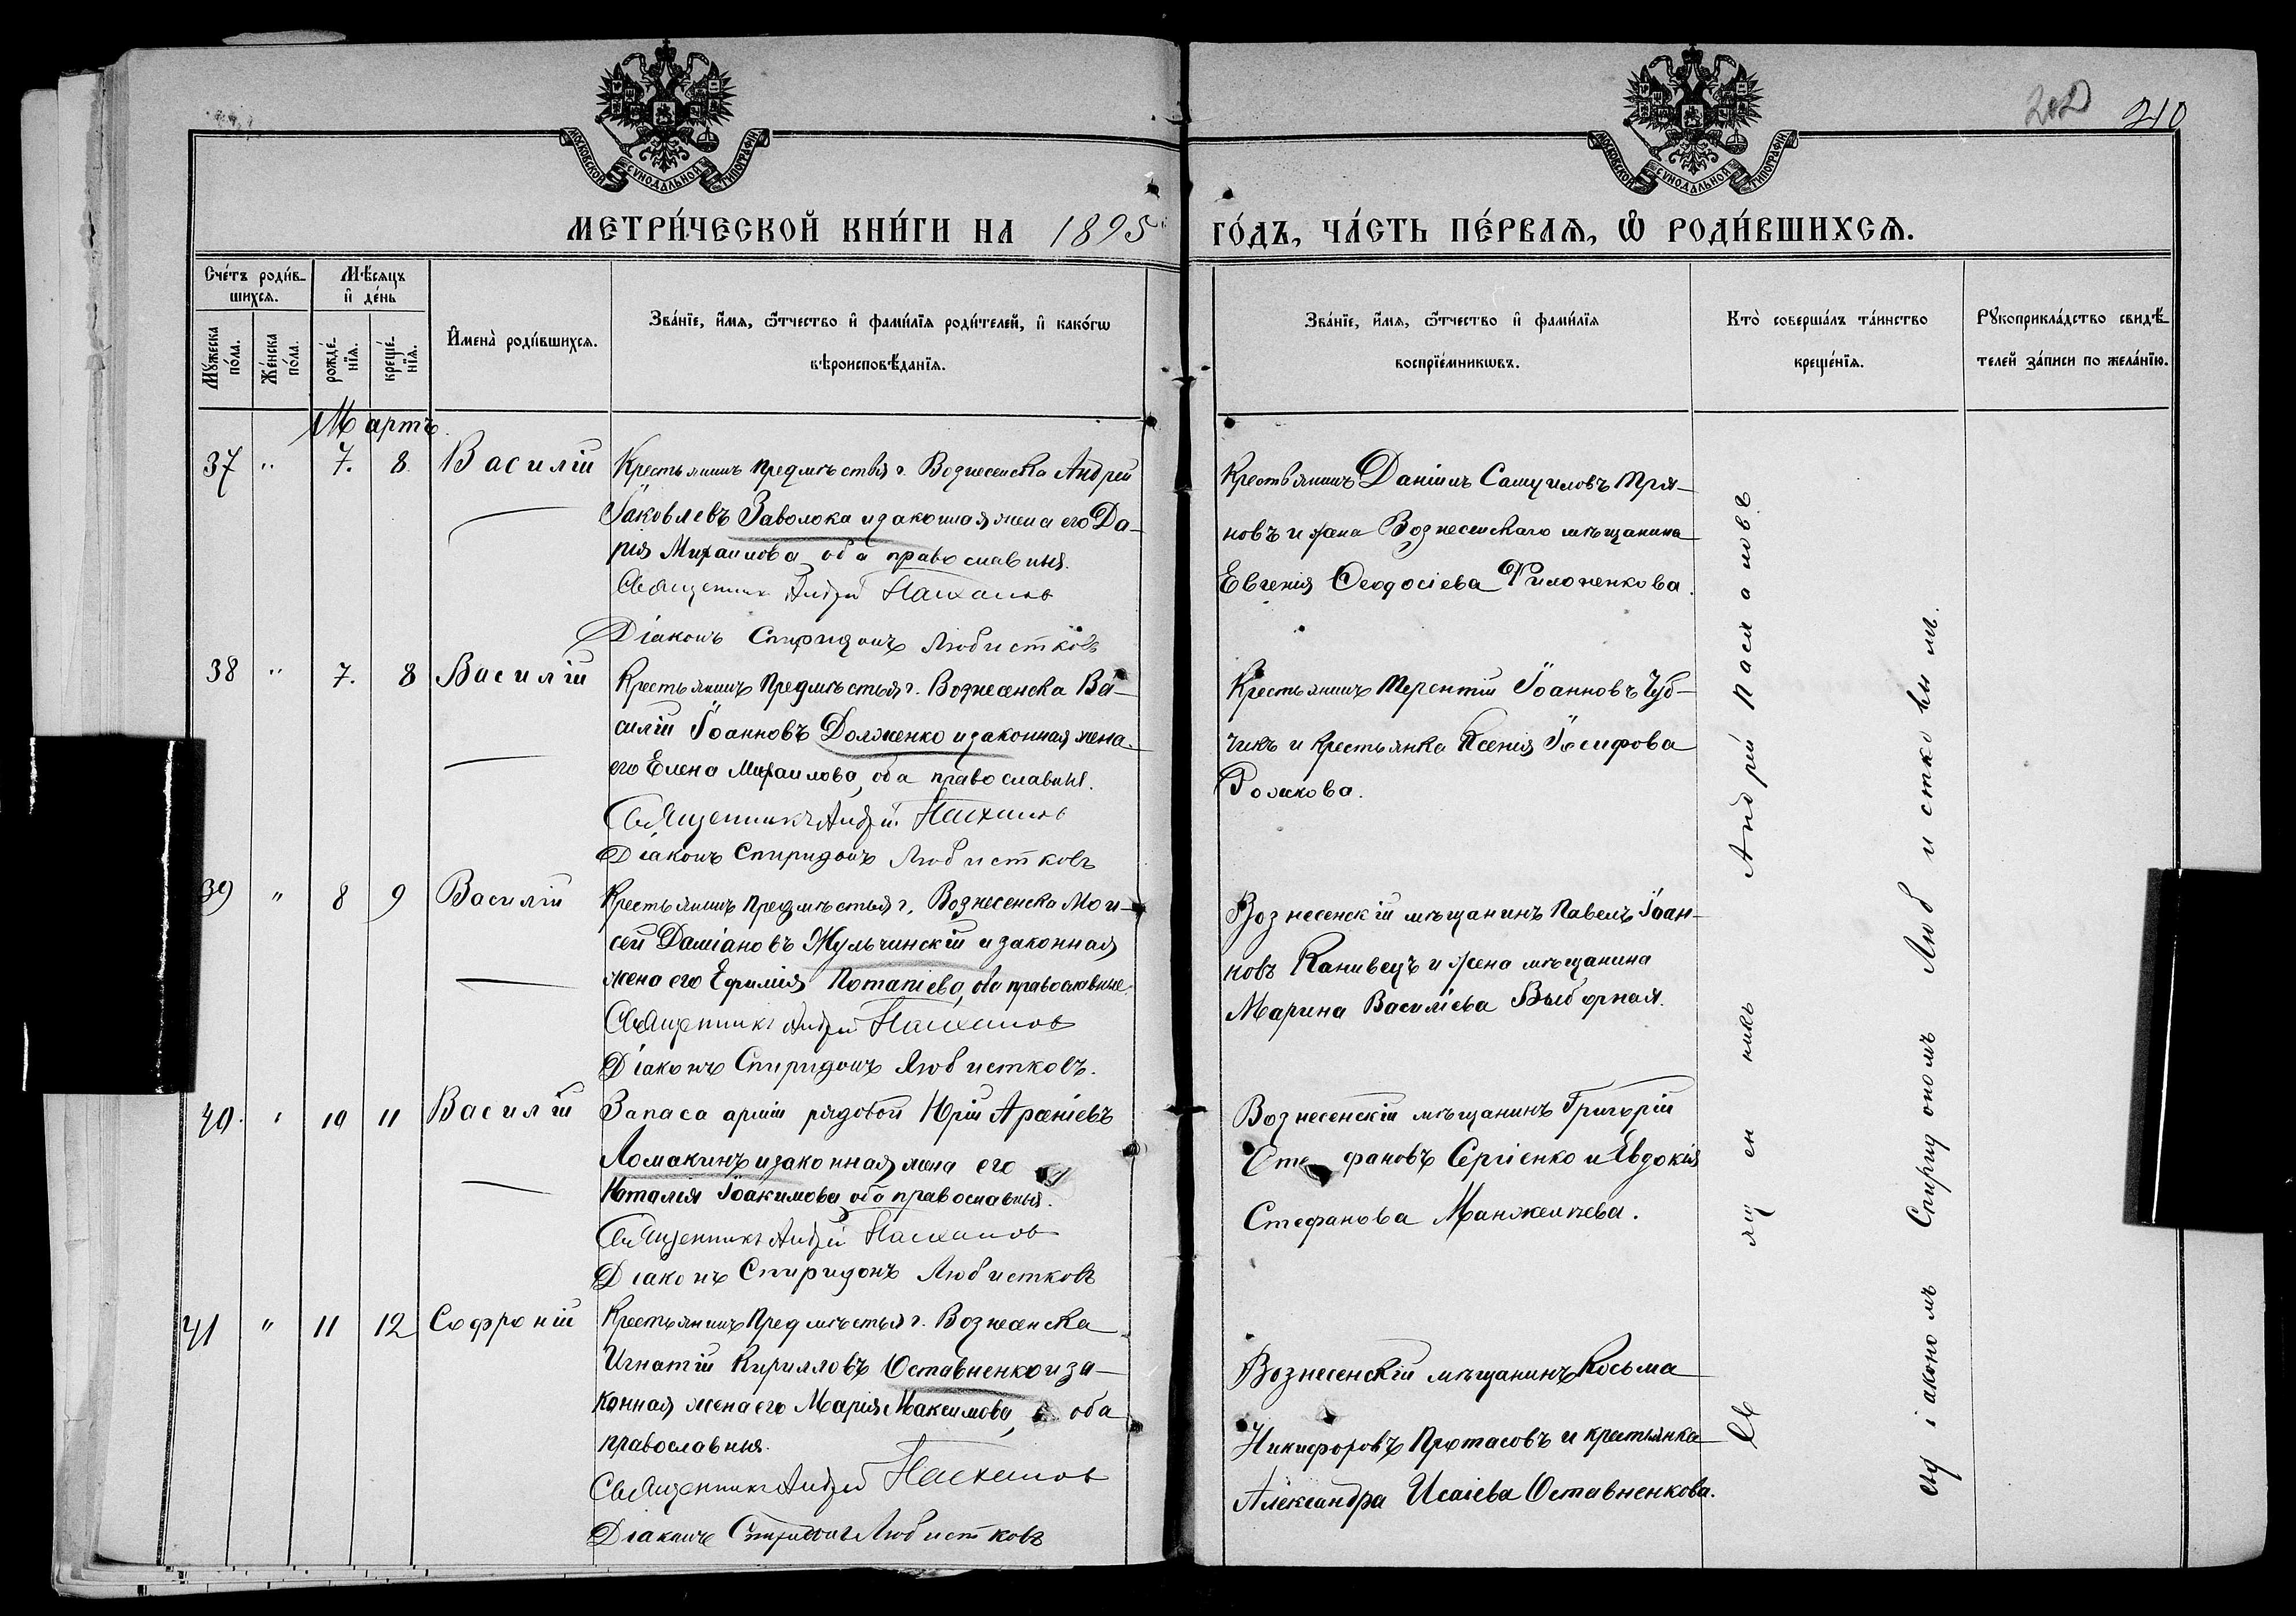 МОСКОВСКОЙ СѴНОДАЛЬНОЙ ТИПОГРАФІИ
МОСКОВСКОЙ СѴНОДАЛЬНОЙ ТИПОГРАФІИ
210
МЕТРИ́ЧЕСКОЙ КНИ́ГИ НА 1895 ГО́ДЪ, ЧА́СТЬ ПЕ́РВАѦ, Ѡ҆ РОДИ́ВШИХСѦ.
Сче́тъ роди́в-
шихсѧ.
Мꙋ́жеска по́ла.
Же́нска по́ла.
Мѣ́сѧцъ и҆ де́нь
рожде́-нїѧ.
креще́-нїѧ.
И҆мена̀ роди́вшихсѧ.
Зва́нїе, и҆́мѧ, ѻ҆́тчество и҆ фами́лїѧ роди́телей, и҆ како́гѡ
вѣроисповѣ́данїѧ.
Зва́нїе, и҆́мѧ, ѻ҆́тчество и҆ фами́лїѧ
воспрїе́мникѡвъ.
Кто̀ соверша́лъ та́инство
креще́нїѧ.
Рꙋкоприкла́дство свидѣ́-
телей за́писи по жела́нїю.
Мартъ
37 " 7. 8. Василій
Крестьянинъ предмѣстья г. Вознесенска Андрей
Іаковлевъ Заволока и законная жена его Да-
рія Михаилова, оба православныя.
Священникъ Андрей
Діаконъ Спиридонъ Любистковъ
Крестьянинъ Даніилъ Самуиловъ Тря-
новъ и жена Вознесенскаго мѣщанина
Евгенія Ѳеодосіева Филоненкова.
38 " 7. 8 Василій
Крестьянинъ Предмѣстья г. Вознесенска Ва-
силій Іоанновъ Долженко и законная жена
его Елена Михаилова, оба православныя.
Священникъ Андрей
Діаконъ Спиридонъ Любистковъ
Крестьянинъ Терентій Іоанновъ Чуб-
чикъ и крестьянка Ксенія Іосифова
Рожкова.
39 " 8 9 Василій
Крестьянинъ Предмѣстья г. Вознесенска Мои-
сей Даміановъ Жульчинскій и законная
жена его Ефимія Потапіева, оба православные.
Священникъ Андрей
Діаконъ Спиридонъ Любистковъ.
Вознесенскій мѣщанинъ Павелъ Іоан-
новъ Канивецъ и жена мѣщанина
Марина Василіева Выборная.
40. " 10 11 Василій
Запаса арміи рядовой Юрій Арсеніевъ
Ломакинъ и законная жена его
Наталія Іоакимова, оба православныя.
Священникъ Андрей
Діаконъ Спиридонъ Любистковъ
Вознесенскій мѣщанинъ Григорій
Стефановъ Сергіенко и Евдокія
Стефанова Манжелиева.
41 " 11 12 Софроній
Крестьянинъ Предмѣстья г. Вознесенска
Игнатій Кирилловъ Оставненко и за-
конная жена его Марія Максимова, оба
православныя.
Священникъ Андрей
Діаконъ Спиридонъ Любистковъ
Вознесенскій мѣщанинъ Косьма
Никифоровъ Протасовъ и крестьянка
Александра Исаіева Оставненкова.
Священникъ Андрей
съ діакономъ Спиридономъ Любистковымъ.